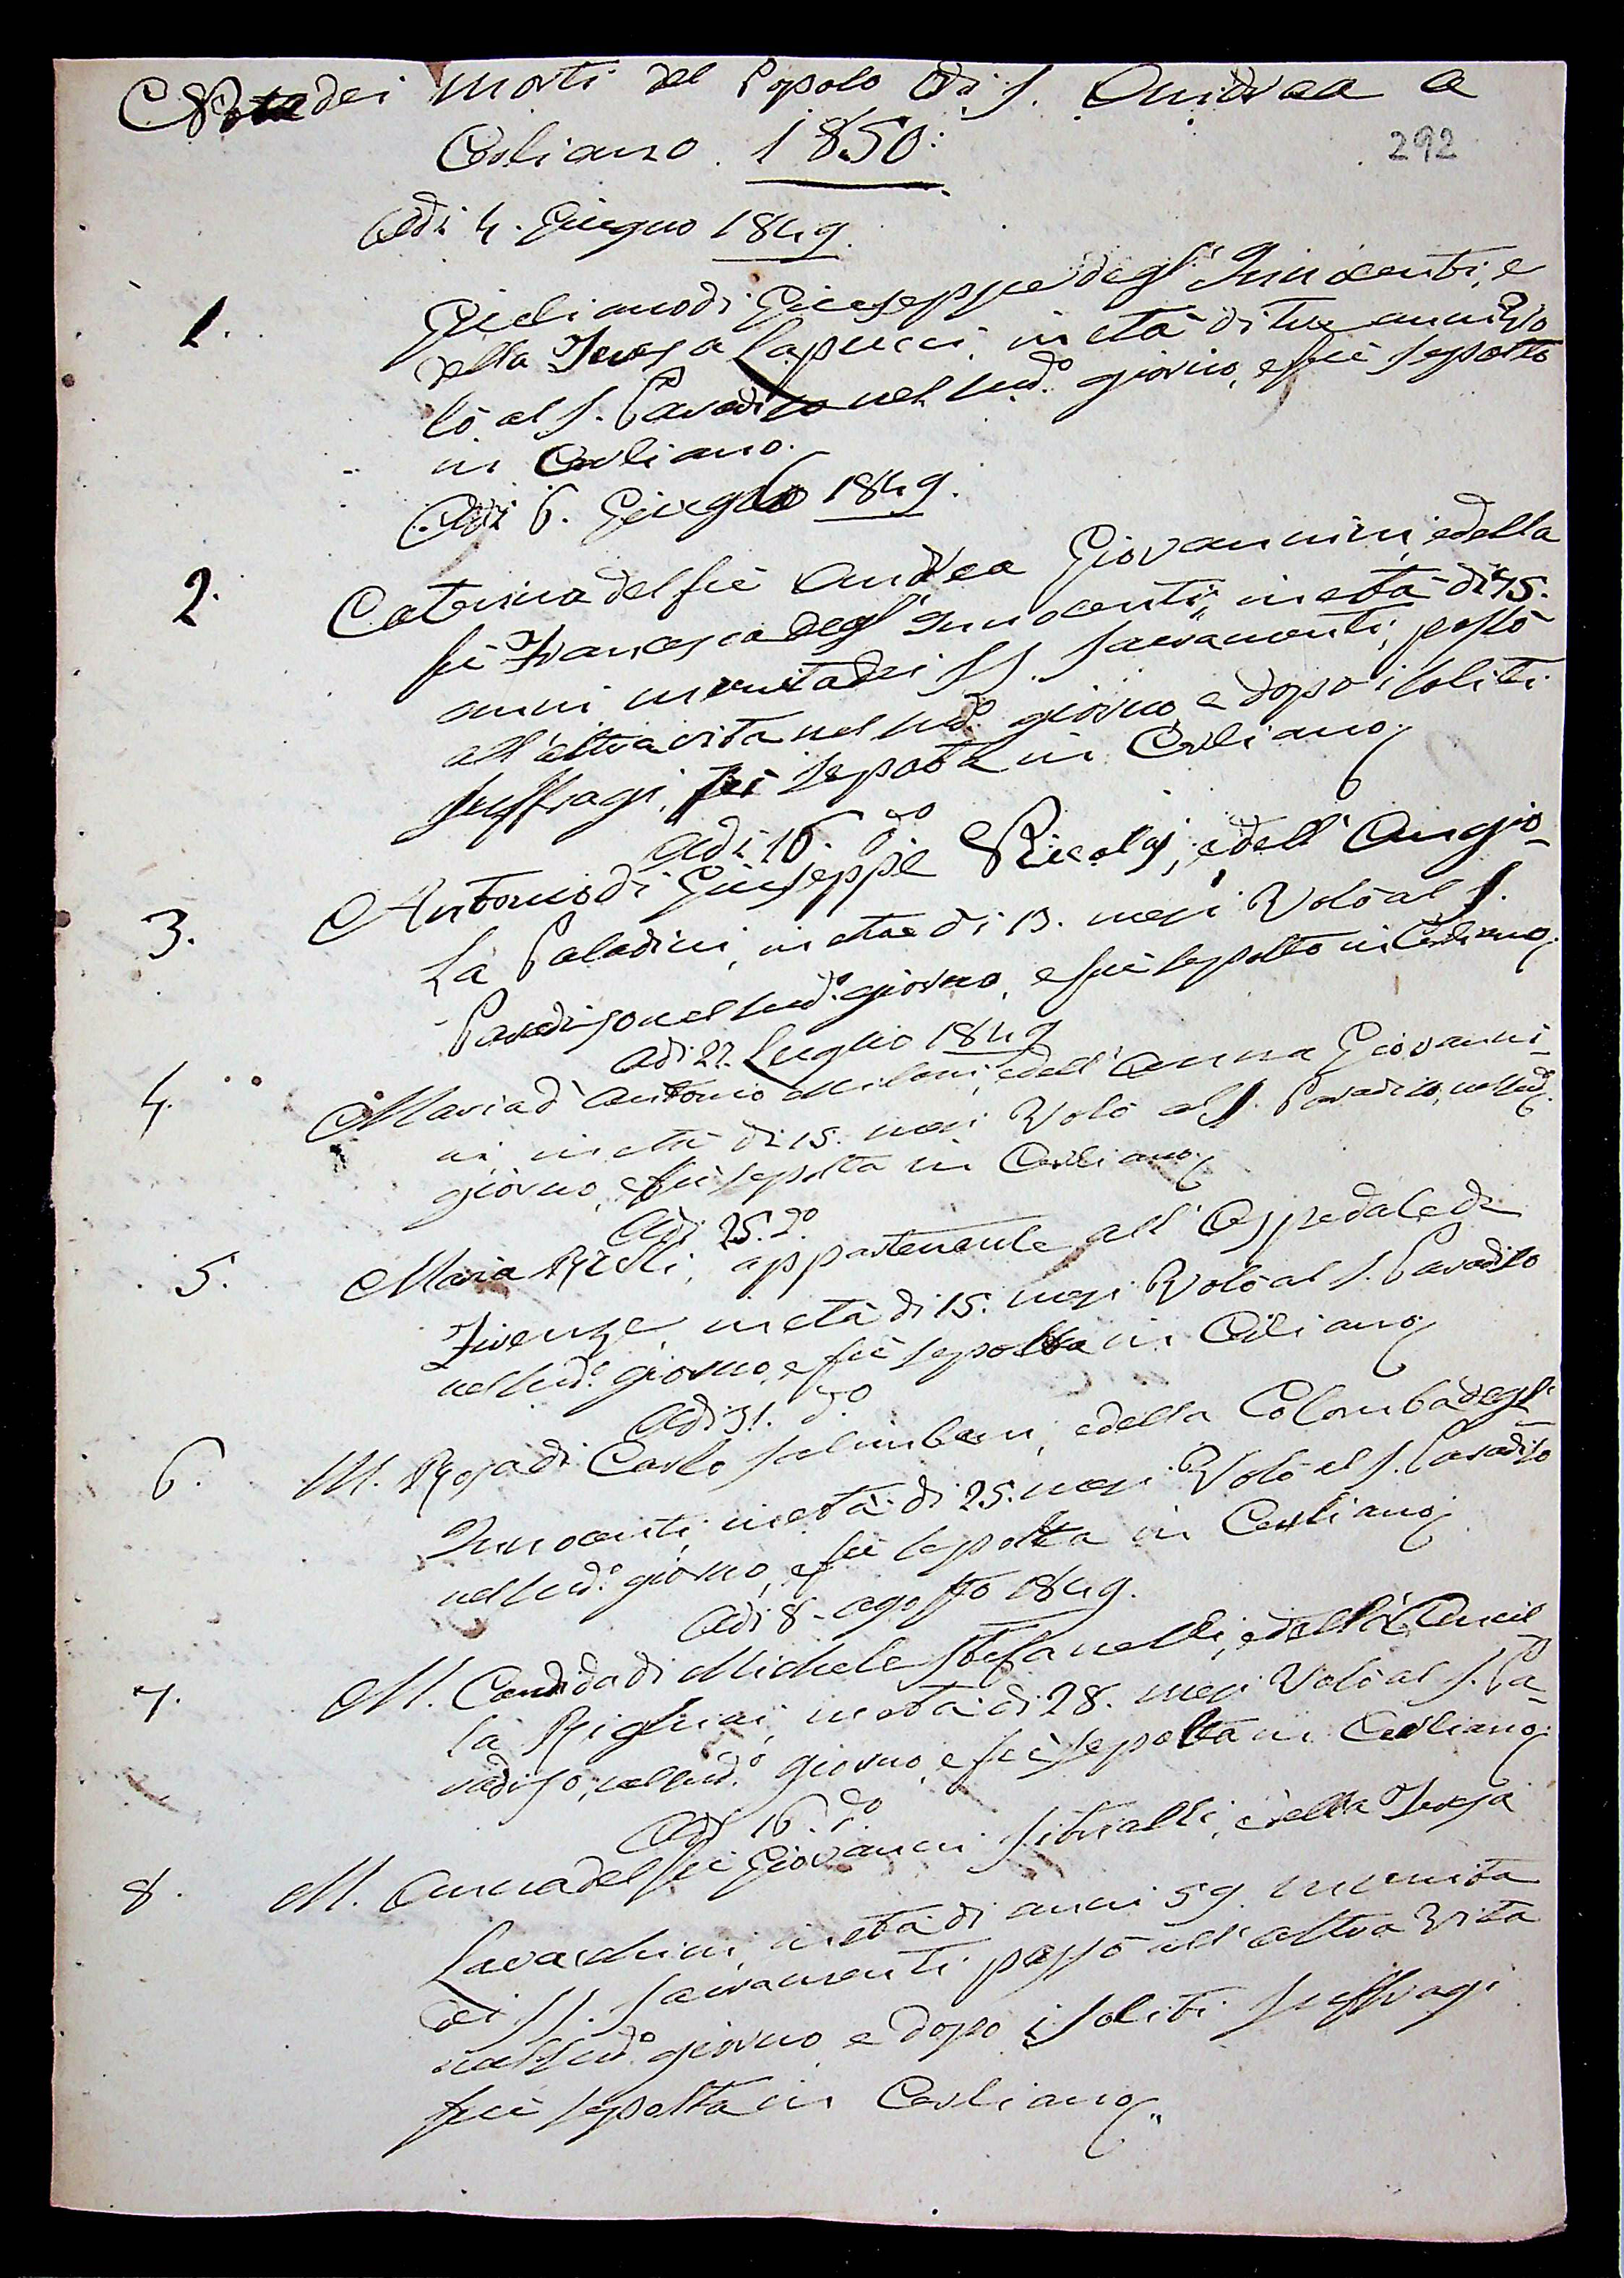 Nota dei Morti del Popolo di S. Andrea a
Cerliano. 1850.
292
Adi 4. Giugno 1849.
1. Giuliano di Giuseppe degl' Innocenti, e
della Teresa Lapucci in età di tre anni Vo
lò al S. Paradiso nel sud.o giorno, e fù sepolto
in Cerliano.
Adi 6. Giugno 1849.
2. Caterina del fù Andrea Giovannini, e della
fù Francesca degl' Innocenti, in età di 75.
anni munita dei SS. Sacramenti, passò
all' altra vita nel sud.o giorno e dopo i soliti
suffragi, fù sepolta in Cerliano.
Adi 16. d.o
3. Antonio di Giuseppe Ricolsi, e dell' Angio-
la Paladini, in età di 13. mesi Volò al S.
Paradiso nel sud.o giorno, e fù sepolto in Cerliano.
Adi 22. Luglio 1849
4. Maria d' Antonio Milani, e dell' Anna Giovanni-
ni in età di 15. mesi Volò al S. Paradiso, nel sud.o
giorno, e fù sepolta in Cerliano.
Adi 25. d.o
5. Maria , appartenente all' Ospedale di
Firenze in età di 15. mesi Volò al S. Paradiso
nel sud.o giorno, e fù sepolta in Cerliano.
Adi 31. d.o
6. M. Rosa di Carlo Salimbeni, e della Colomba degl'
Innocenti, in età di 25. mesi Volò al S. Paradiso
nel sud.o giorno, e fù sepolta in Cerliano.
Adi 8. Agosto 1849.
7. M. Candida di Michele Stefanelli, e dell' Ancil
la Righini, in età di 28. mesi Volò al S. Pa-
radiso, nel sud.o giorno, e fù sepolta in Cerliano.
Adi 16. d.o
8. M. Anna del fù Giovanni Sitrialli, e della Teresa
Lavacchini in età di anni 59. munita
dei SS. Sacramenti passò all' altra Vita
nel sud.o giorno e dopo i soliti suffragi
fù sepolta in Cerliano.